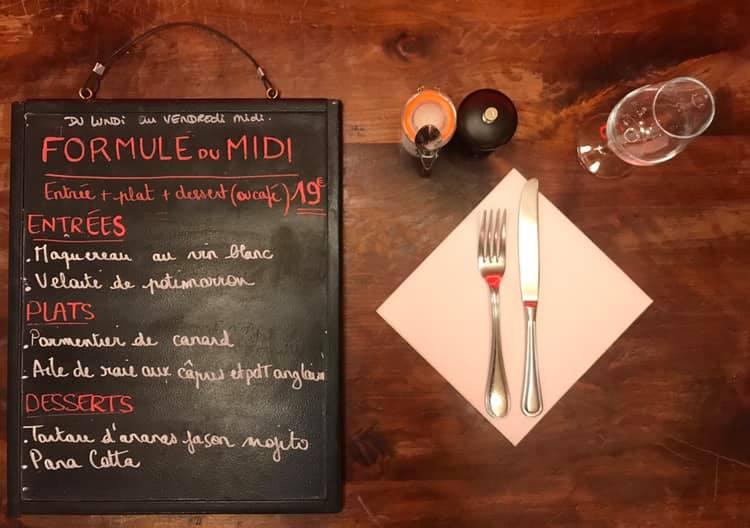 DU LUNDI au VENDREDI midi.
FORMULE DU MIDI
Entrée + plat + dessert (ou café) 19€
ENTRÉES
. Maquereau au vin blanc
. Velouté de potimarron
PLATS
. Parmentier de canard
. Aile de raie aux câpres et pdt anglaise
DESSERTS
. Tartare d'ananas façon mojito
. Pana Cotta